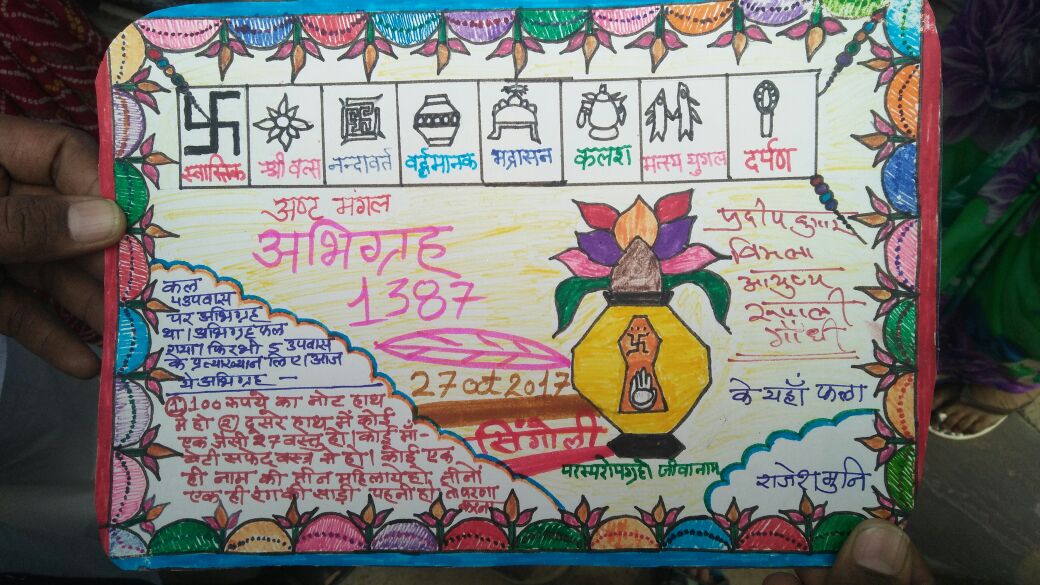 स्वास्तिक श्री वत्स नन्दावर्त वर्द्धमानक भद्रासन कलश मत्स्य युगल दर्पण
अष्ट मंगल
अभिग्रह
1387
27 oct 2017
सिंगोली
परस्परोपग्रहो जीवानाम
प्रदीप कुमार
विमला
आयुष्य
रूपाली
गाँधी
के यहाँ फला
राजेश मुनि
कल
५उपवास
पर अभिग्रह
था। अभिग्रह फल
गया। फिर भी 5 उपवास
के प्रत्याख्यान लिए। आज
ये अभिग्रह —
① 100 रुपये का नोट हाथ
में हो ② दूसरे हाथ में कोई
एक जैसी 27 वस्तु हो। कोई माँ-
बेटी सफेद वस्त्र में हो। कोई एक
ही नाम की तीन महिलाये हो, तीनों
एक ही रंग की साड़ी पहनी हो तो पारणा
करना